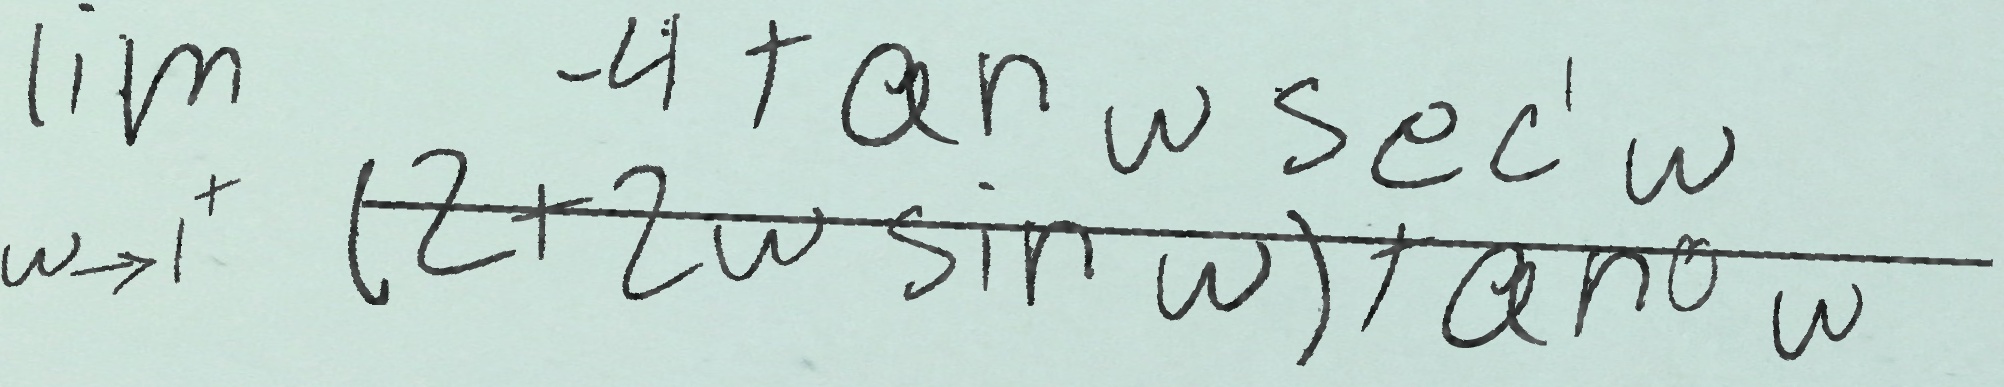 \lim_{w \to 1^+} \frac{-4 \tan w \sec^1 w}{(2+2w \sin w) \tan^0 w}